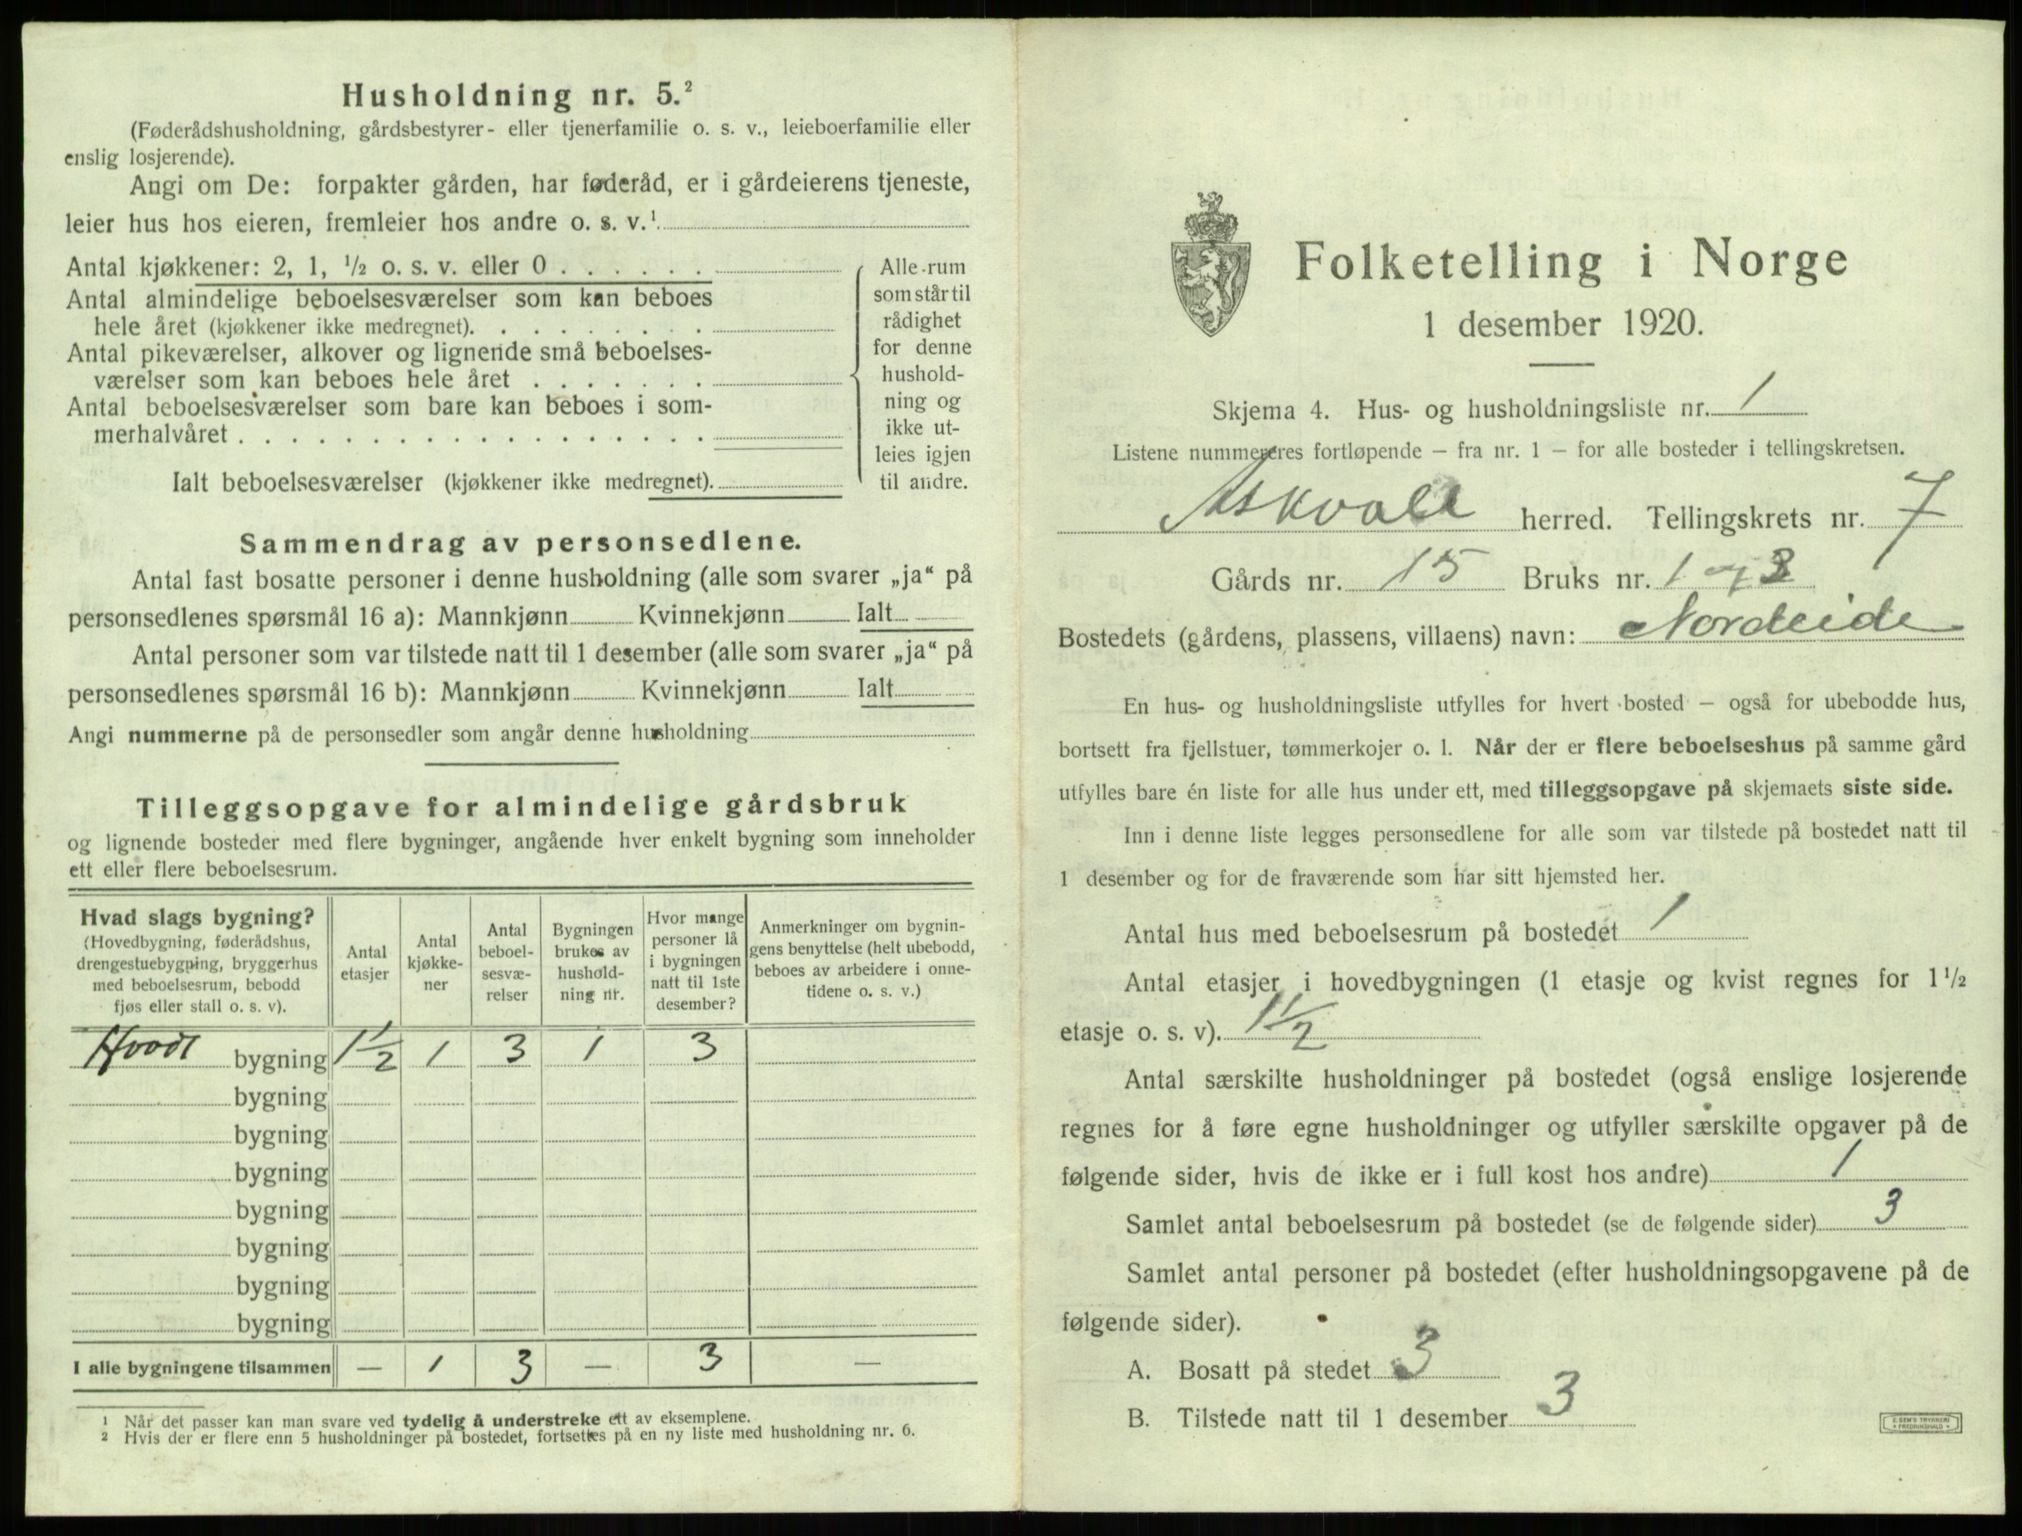 Husholdning nr. 5.²
(Føderådshusholdning, gårdsbestyrer- eller tjenerfamilie o. s. v., leieboerfamilie eller
enslig losjerende).
Angi om De: forpakter gården, har føderåd, er i gårdeierens tjeneste,
leier hus hos eieren, fremleier hos andre o. s. v.¹
Antal kjøkkener: 2, 1, ½ o. s. v. eller 0
Antal almindelige beboelsesværelser som kan beboes
hele året (kjøkkener ikke medregnet).
Antal pikeværelser, alkover og lignende små beboelses-
værelser som kan beboes hele året
Antal beboelsesværelser som bare kan beboes i som-
merhalvåret
Ialt beboelsesværelser (kjøkkener ikke medregnet).
Alle rum
som står til
rådighet
for denne
hushold-
ning og
ikke ut-
leies igjen
til andre.
Sammendrag av personsedlene.
Antal fast bosatte personer i denne husholdning (alle som svarer „ja“ på
personsedlenes spørsmål 16 a): Mannkjønn Kvinnekjønn Ialt
Antal personer som var tilstede natt til 1 desember (alle som svarer „ja“ på
personsedlenes spørsmål 16 b): Mannkjønn Kvinnekjønn Ialt
Angi nummerne på de personsedler som angår denne husholdning
Tilleggsopgave for almindelige gårdsbruk
og lignende bosteder med flere bygninger, angående hver enkelt bygning som inneholder
ett eller flere beboelsesrum.
Hvad slags bygning?
(Hovedbygning, føderådshus,
drengestuebygning, bryggerhus
med beboelsesrum, bebodd
fjøs eller stall o. s. v).
Antal
etasjer
Antal
kjøkke-
ner
Antal
beboel-
sesvæ-
relser
Bygningen
brukes av
hushold-
ning nr.
Hvor mange
personer lå
i bygningen
natt til 1ste
desember?
Anmerkninger om bygnin-
gens benyttelse (helt ubebodd,
beboes av arbeidere i onne-
tidene o. s. v.)
bygning 1½ 1 3 1 3
bygning
bygning
bygning
bygning
bygning
bygning
bygning
I alle bygningene tilsammen — 1 3 — 3 —
¹ Når det passer kan man svare ved tydelig å understreke ett av eksemplene.
² Hvis der er flere enn 5 husholdninger på bostedet, fortsettes på en ny liste med husholdning nr. 6.
Folketelling i Norge
1 desember 1920.
Skjema 4. Hus- og husholdningsliste nr. 1
Listene nummereres fortløpende – fra nr. 1 – for alle bosteder i tellingskretsen.
Askvoll herred. Tellingskrets nr. 7
Gårds nr. 15 Bruks nr. 1
Bostedets (gårdens, plassens, villaens) navn: Nordeide
En hus- og husholdningsliste utfylles for hvert bosted – også for ubebodde hus,
bortsett fra fjellstuer, tømmerkojer o. l. Når der er flere beboelseshus på samme gård
utfylles bare én liste for alle hus under ett, med tilleggsopgave på skjemaets siste side.
Inn i denne liste legges personsedlene for alle som var tilstede på bostedet natt til
1 desember og for de fraværende som har sitt hjemsted her.
Antal hus med beboelsesrum på bostedet 1
Antal etasjer i hovedbygningen (1 etasje og kvist regnes for 1½
etasje o. s. v). 1½
Antal særskilte husholdninger på bostedet (også enslige losjerende
regnes for å føre egne husholdninger og utfyller særskilte opgaver på de
følgende sider, hvis de ikke er i full kost hos andre) 1
Samlet antal beboelsesrum på bostedet (se de følgende sider) 3
Samlet antal personer på bostedet (efter husholdningsopgavene på de
følgende sider).
A. Bosatt på stedet 3
B. Tilstede natt til 1 desember 3
E. SEM'S TRYKKERI
FREDRIKSHALD